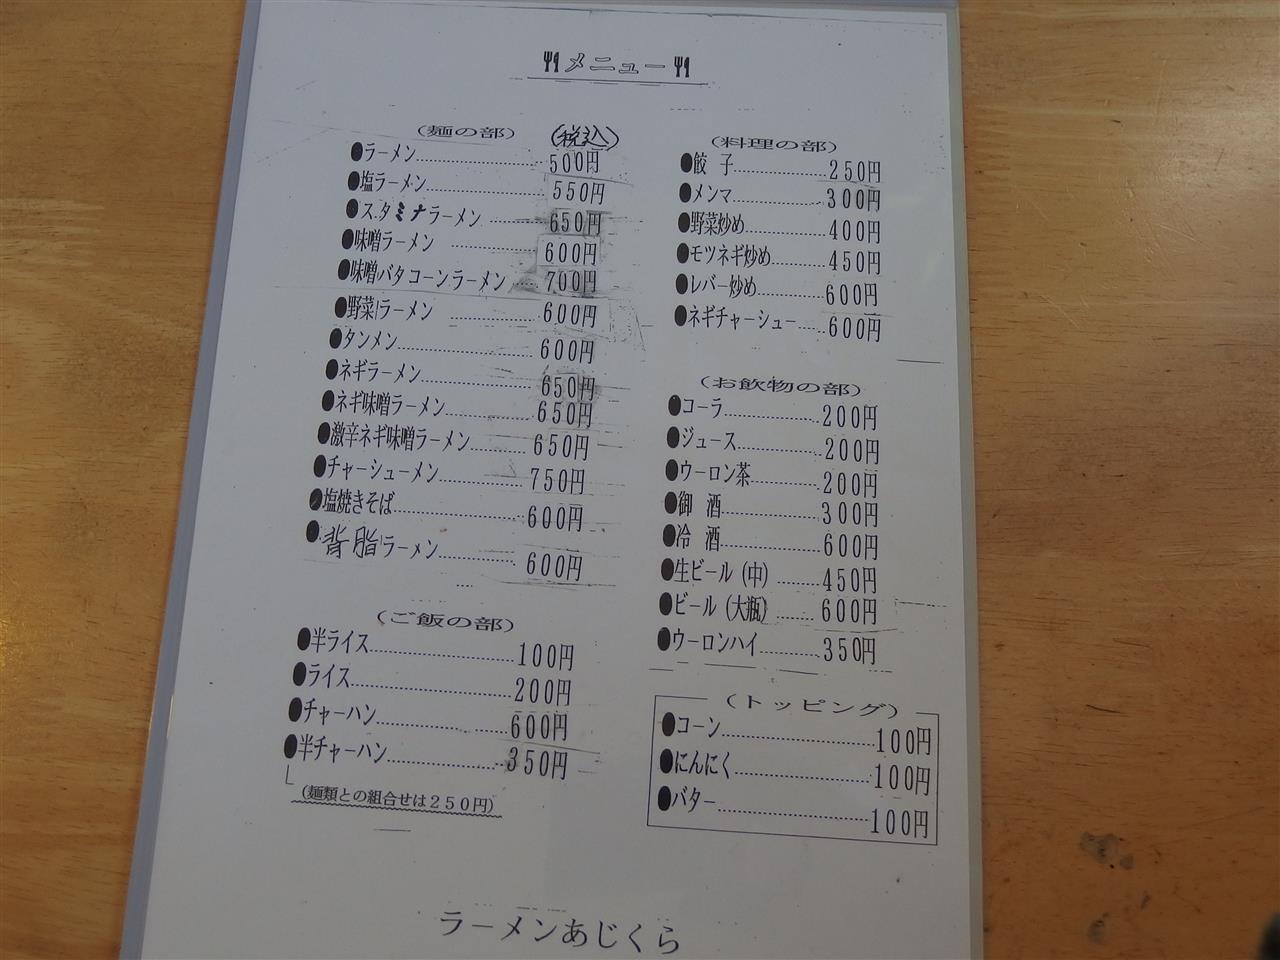 メニュー
(麺の部) (税込)
●ラーメン 500円
●塩ラーメン 550円
●スタミナラーメン 650円
●味噌ラーメン 600円
●味噌バタコーンラーメン 700円
●野菜ラーメン 600円
●タンメン 600円
●ネギラーメン 650円
●ネギ味噌ラーメン 650円
●激辛ネギ味噌ラーメン 650円
●チャーシューメン 750円
●塩焼きそば 600円
●背脂ラーメン 600円
(ご飯の部)
●半ライス 100円
●ライス 200円
●チャーハン 600円
●半チャーハン 350円
(麺類との組合せは250円)
(料理の部)
●餃子 250円
●メンマ 300円
●野菜炒め 400円
●モツネギ炒め 450円
●レバー炒め 600円
●ネギチャーシュー 600円
(お飲物の部)
●コーラ 200円
●ジュース 200円
●ウーロン茶 200円
●御酒 300円
●冷酒 600円
●生ビール(中) 450円
●ビール(大瓶) 600円
●ウーロンハイ 350円
(トッピング)
●コーン 100円
●にんにく 100円
●バター 100円
ラーメンあじくら